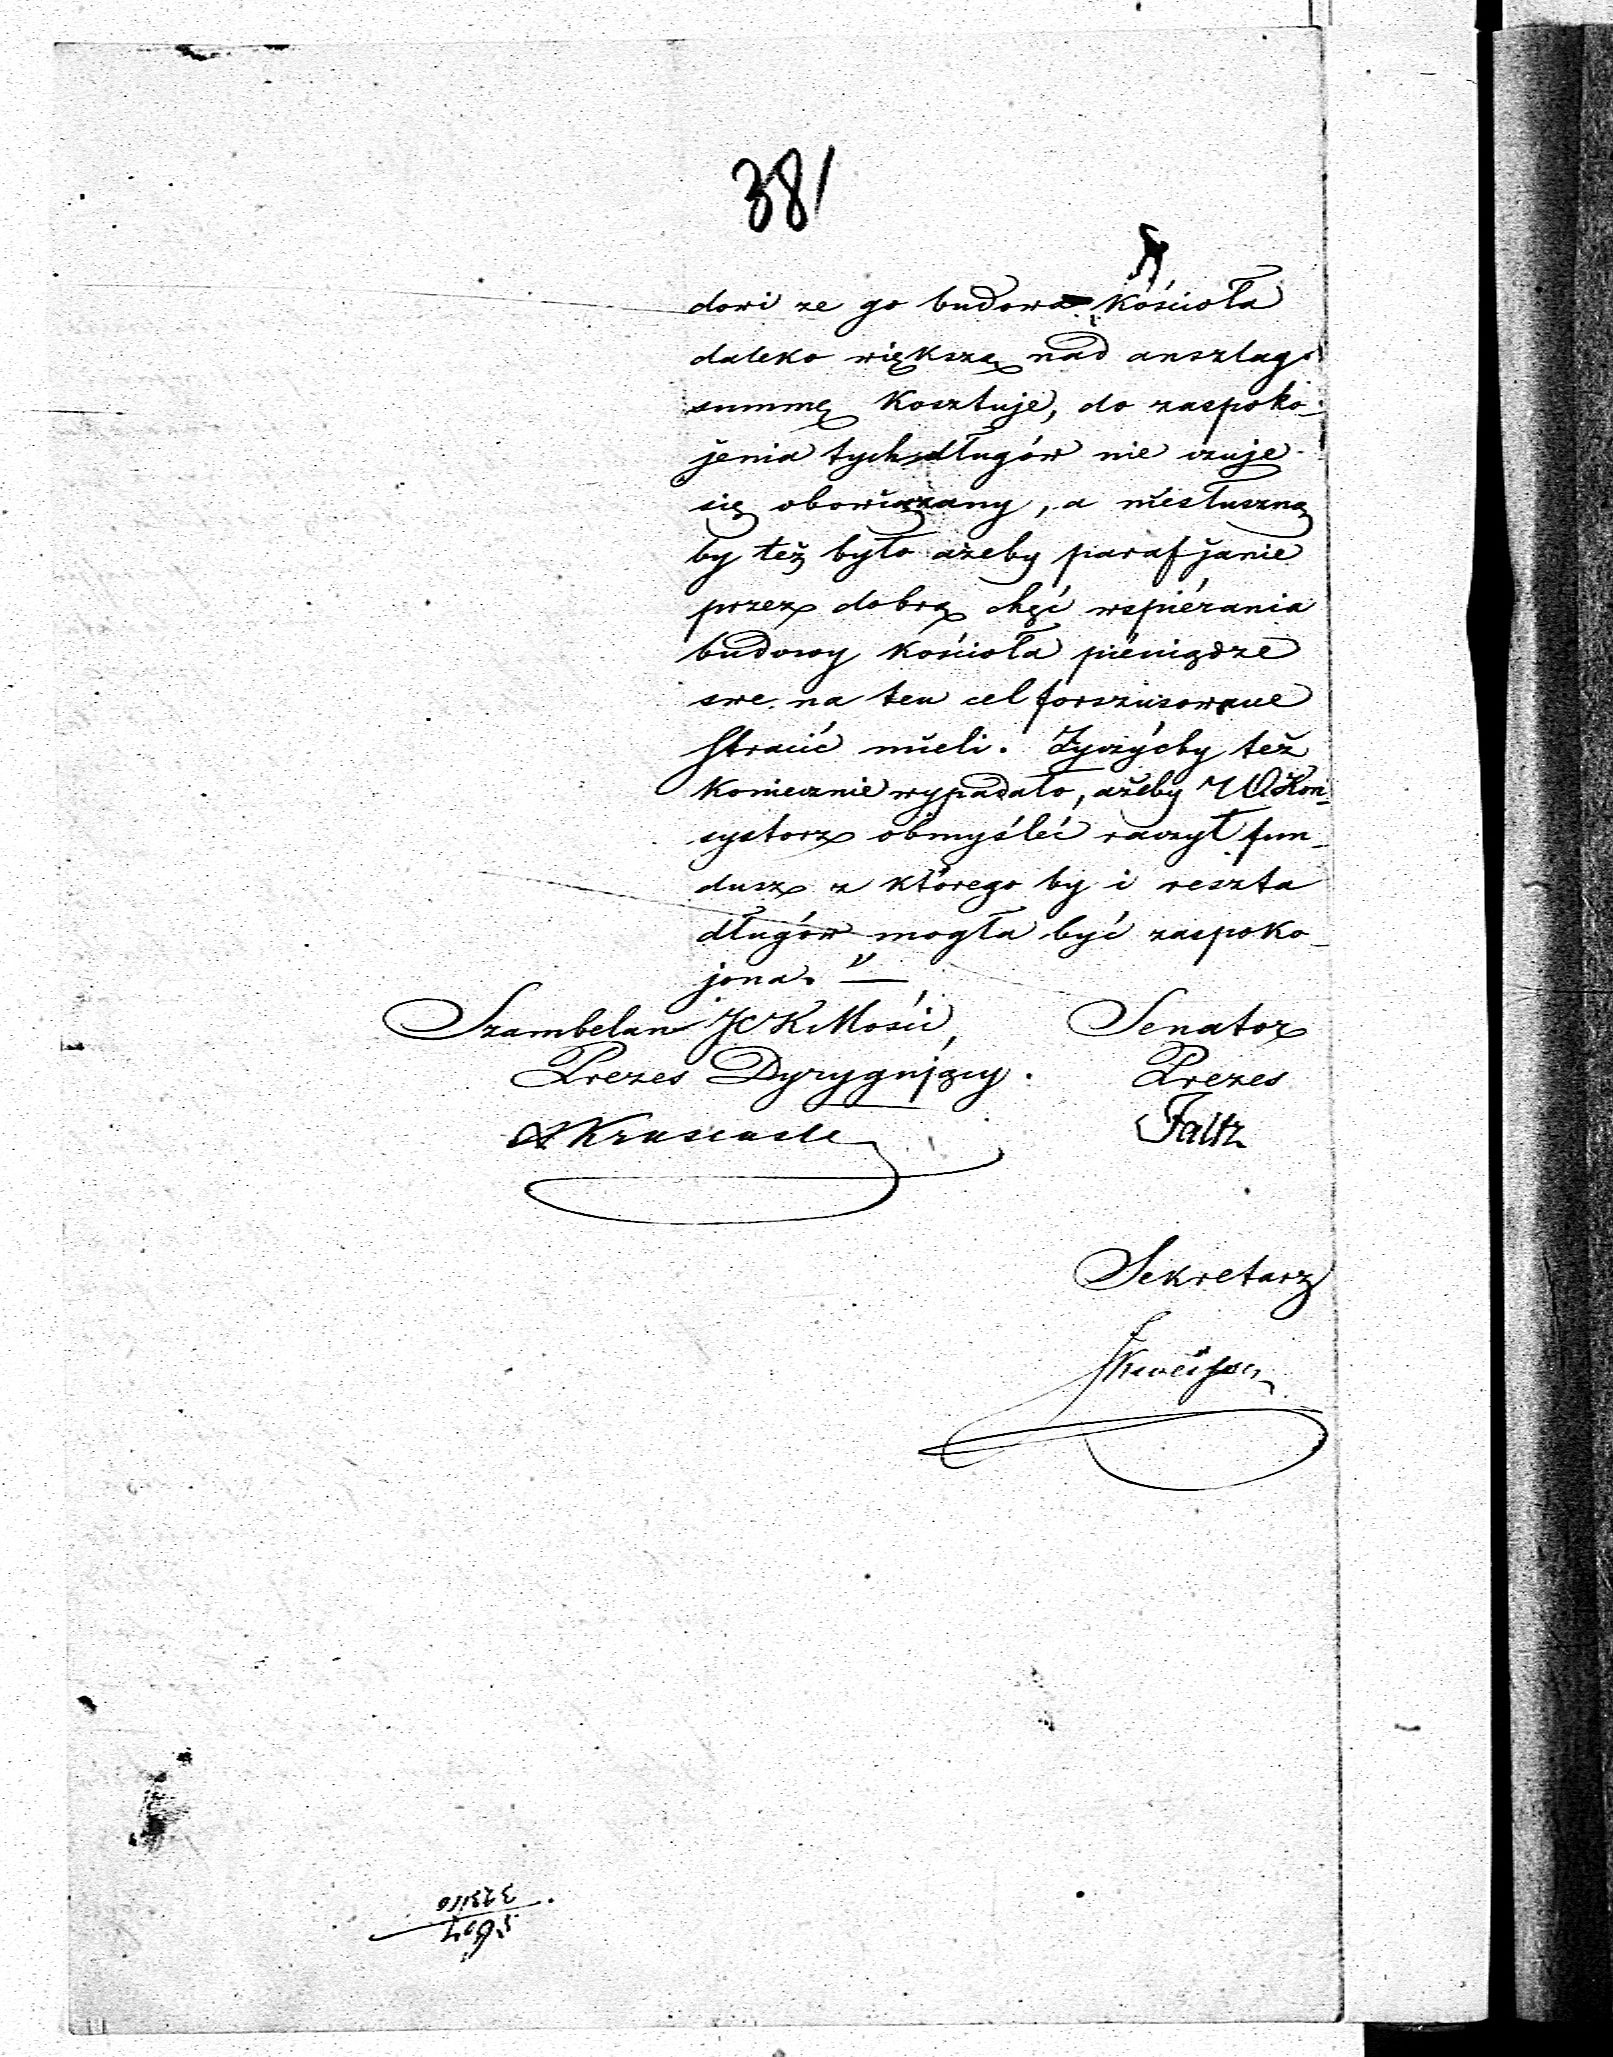 381
dowi ze go budowa Kościoła
daleko większą nad anszlag
summę Kosztuje, do zaspoko-
jenia tych długów nie czuje
się obowiązany, a niesłuszną
by też było ażeby parafjanie
przez dobrą chęć wspiérania
budowy Kościoła pieniądze
swe na ten cel forszusowane
stracić mieli. Życzyćby też
Koniecznie wypadało, ażeby Kon-
systorz obmyśléć raczył fun-
dusz z którego by i reszta
długów mogła być zaspoko-
jona.
Szambelan JKMości, Senator
Prezes Dyrygujący. Prezes
Faltz
Sekretarz